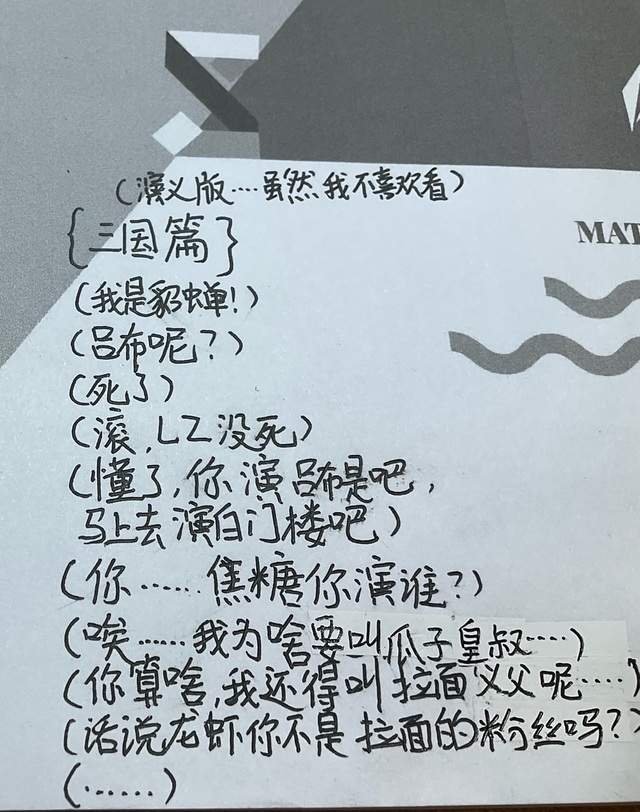 (演义版····虽然我不喜欢看)
{三国篇}
MAT
(我是貂蝉!)
(吕布呢?)
(死了)
(滚,LZ没死)
(懂了,你演吕布是吧,
马上去演白门楼吧)
(你······焦糖你演谁?)
(唉······我为啥要叫瓜子皇叔····)
(你算啥,我还得叫拉面义父呢····)
(话说龙虾你不是拉面的粉丝吗?)
(······)